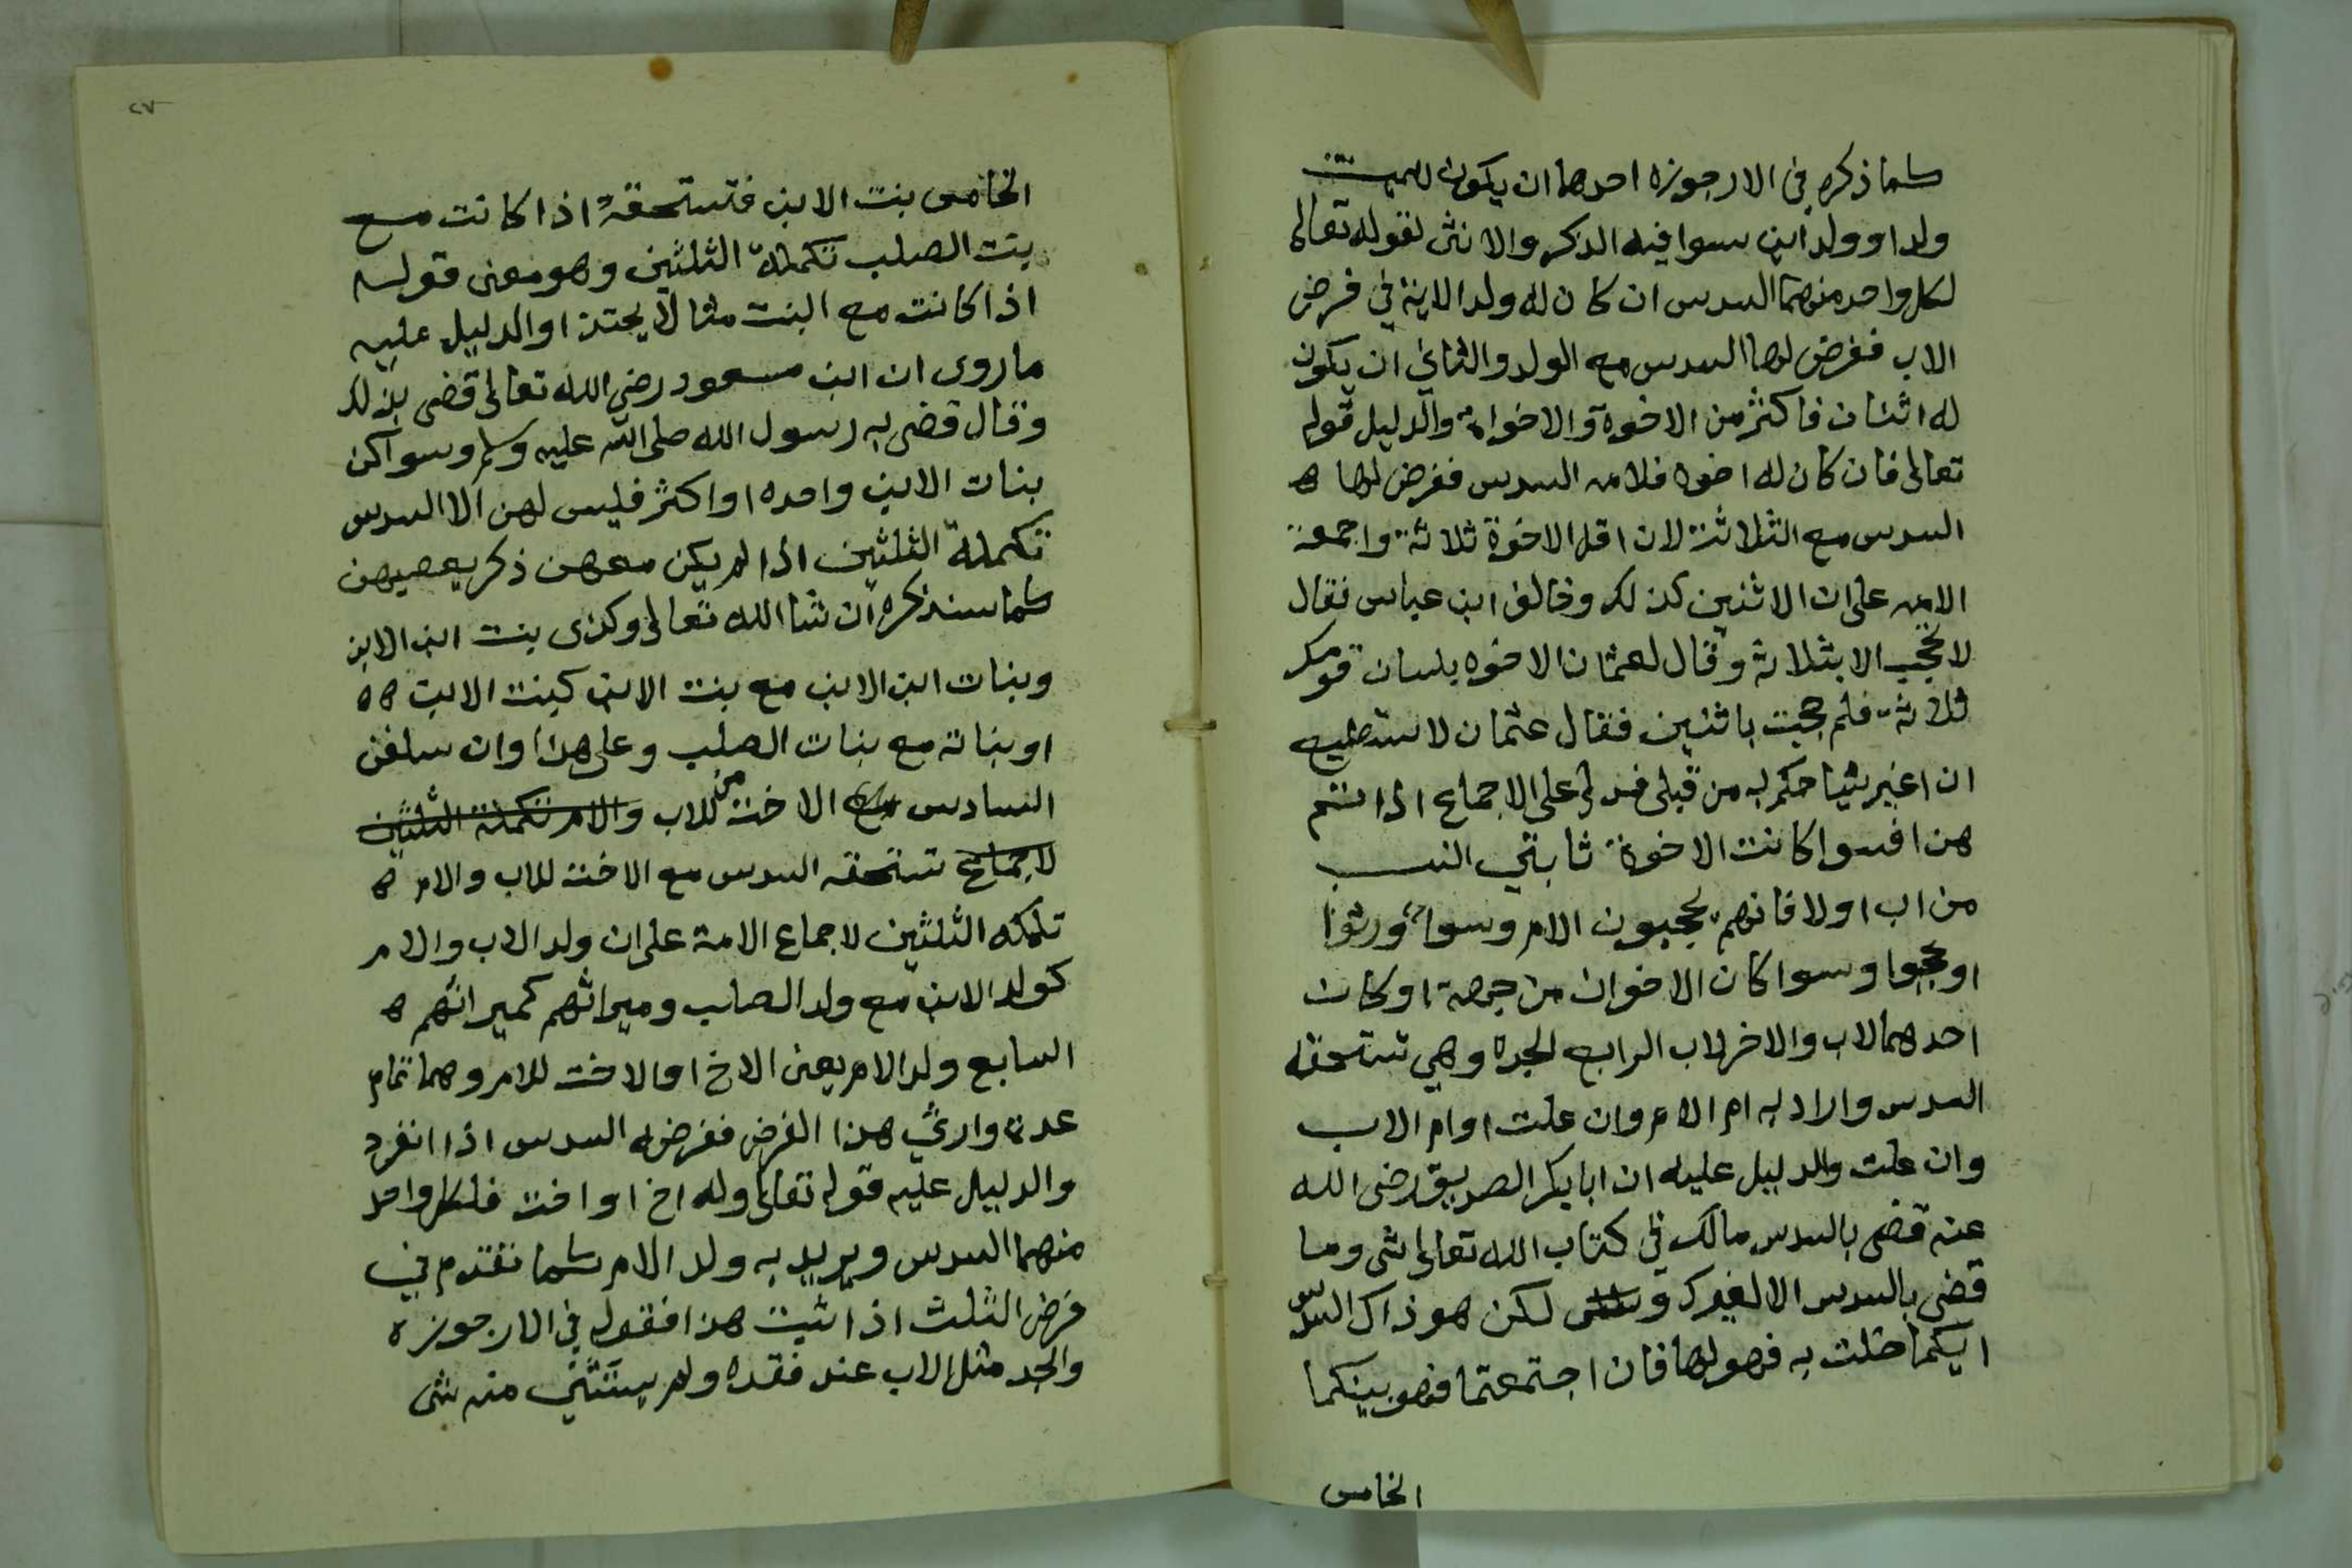 كما ذكره في الارجوزه احدها ان يكون للميت
ولد او ولد ابن سوا فيه الذكر والانثى لقوله تعالى
لكل واحد منهما السدس ان كان له ولد الاية في فرض
الاب ففرض لها السدس مع الولد والثاني ان يكون
له اثنان فاكثر من الاخوة والاخوات والدليل قوله
تعالى فان كان له اخوه فلامه السدس ففرض لها ه
السدس مع الثلاثة لان اقل الاخوة ثلاثة واجمعة
الامه على ان الاثنين كذلك وخالف ابن عباس فقال
لا تحجب الا بثلاثة وقال لعثمان الاخوه بلسان قومك
ثلاثة فلم حجبت باثنين فقال عثمان لا ستطيع
ان اغير شيا حكم به من قبلي فدل على الاجماع اذا
هذا فسوا كانت الاخوة ثابتي النسب
من اب اولا فانهم يحجبون الام وسوا ورثوا
او حجبوا وسوا كان الاخوان من جهة او كان
احدهما لاب والاخر لاب الرابع الجده وهي تستحقه
السدس واراد به ام الام وان علت او ام الاب
وان علت والدليل عليه ان ابا بكر الصديق رضى الله
عنه قضى بالسدس مالك في كتاب الله تعالى شى وما
قضى بالسدس الا لغيرك لكن هو ذاك السدس
ايكما خلت به فهو لها فان اجتمعتما فهو بينكما
الخامس
٢٧
الخامس بنت الابن فتستحقه اذا كانت مع
بنت الصلب تكملة الثلثين وهو معنى قوله
اذا كانت مع البنت مثالا يحتذا والدليل عليه
ما روى ان ابن مسعود رضي الله تعالى قضى بذلك
وقال قضى به رسول الله صلى الله عليه وسلم وسوا كن
بنات الابن واحده او اكثر فليس لهن الا السدس
تكملة الثلثين اذا لم يكن معهن ذكر يعصبهن
كما سنذكره ان شا الله تعالى وكذى بنت ابن الابن
وبنات ابن الابن مع بنت الابن كبنت الابن ه ه
او بناته مع بنات الصلب وعلى هذا وان سلفن
السادس مع الاخت من للاب والام تكملة الثلثين
لاجماع تستحقه السدس مع الاخت للاب والام ه
تكمله الثلثين لاجماع الامة على ان ولد الاب والام
كولد الابن مع ولد الصلب وميراثهم كميراثهم ه
السابع ولد الام يعنى الاخ او الاخت للام وهما تمام
عدة وارثي هذا الفرض ففرضه السدس اذا انفرد
والدليل عليه قوله تعالى وله اخ او اخت فلكل واحد
منهما السدس ويريد به ولد الام كما تقدم في
فرض الثلث اذا ثبت هذا فقوله في الارجوزه
والجد مثل الاب عند فقده ولم يستثني منه شى